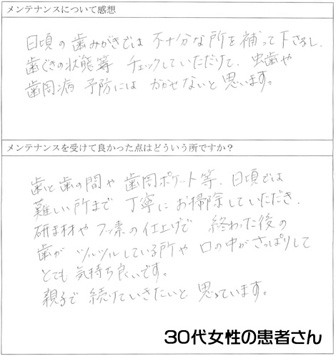 メンテナンスについて感想
日頃の歯みがきでは不十分な所を補って下さるし、
歯ぐきの状態等チェックしていただけて、虫歯や
歯周病予防にはかかせないと思います。
メンテナンスを受けて良かった点はどういう所ですか?
歯と歯の間や歯周ポケット等、日頃では
難しい所まで丁寧にお掃除していただき、
研ま材やフッ素の仕上げで終わった後の
歯がツルツルしている所や口の中がさっぱりして
とても気持ち良いです。
親子で続けていきたいと思っています。
30代女性の患者さん